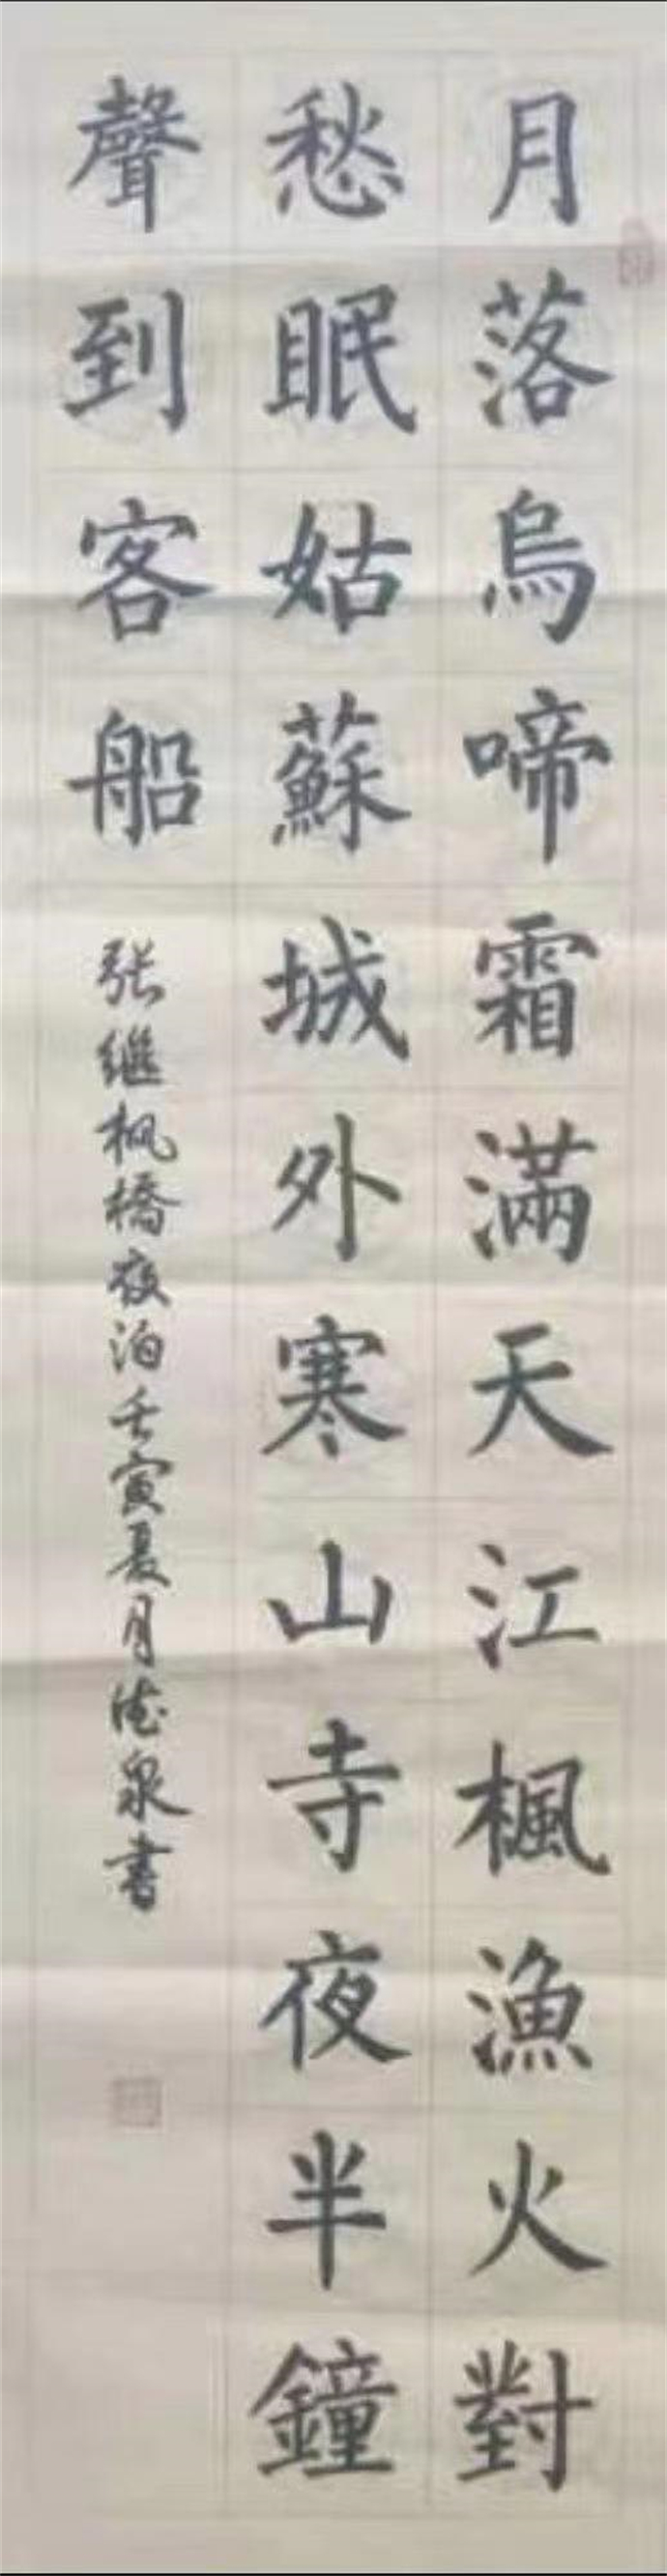 月落烏啼霜滿天江楓漁火對
愁眠姑蘇城外寒山寺夜半鐘
聲到客船
张继枫橋夜泊壬寅夏月德泉書